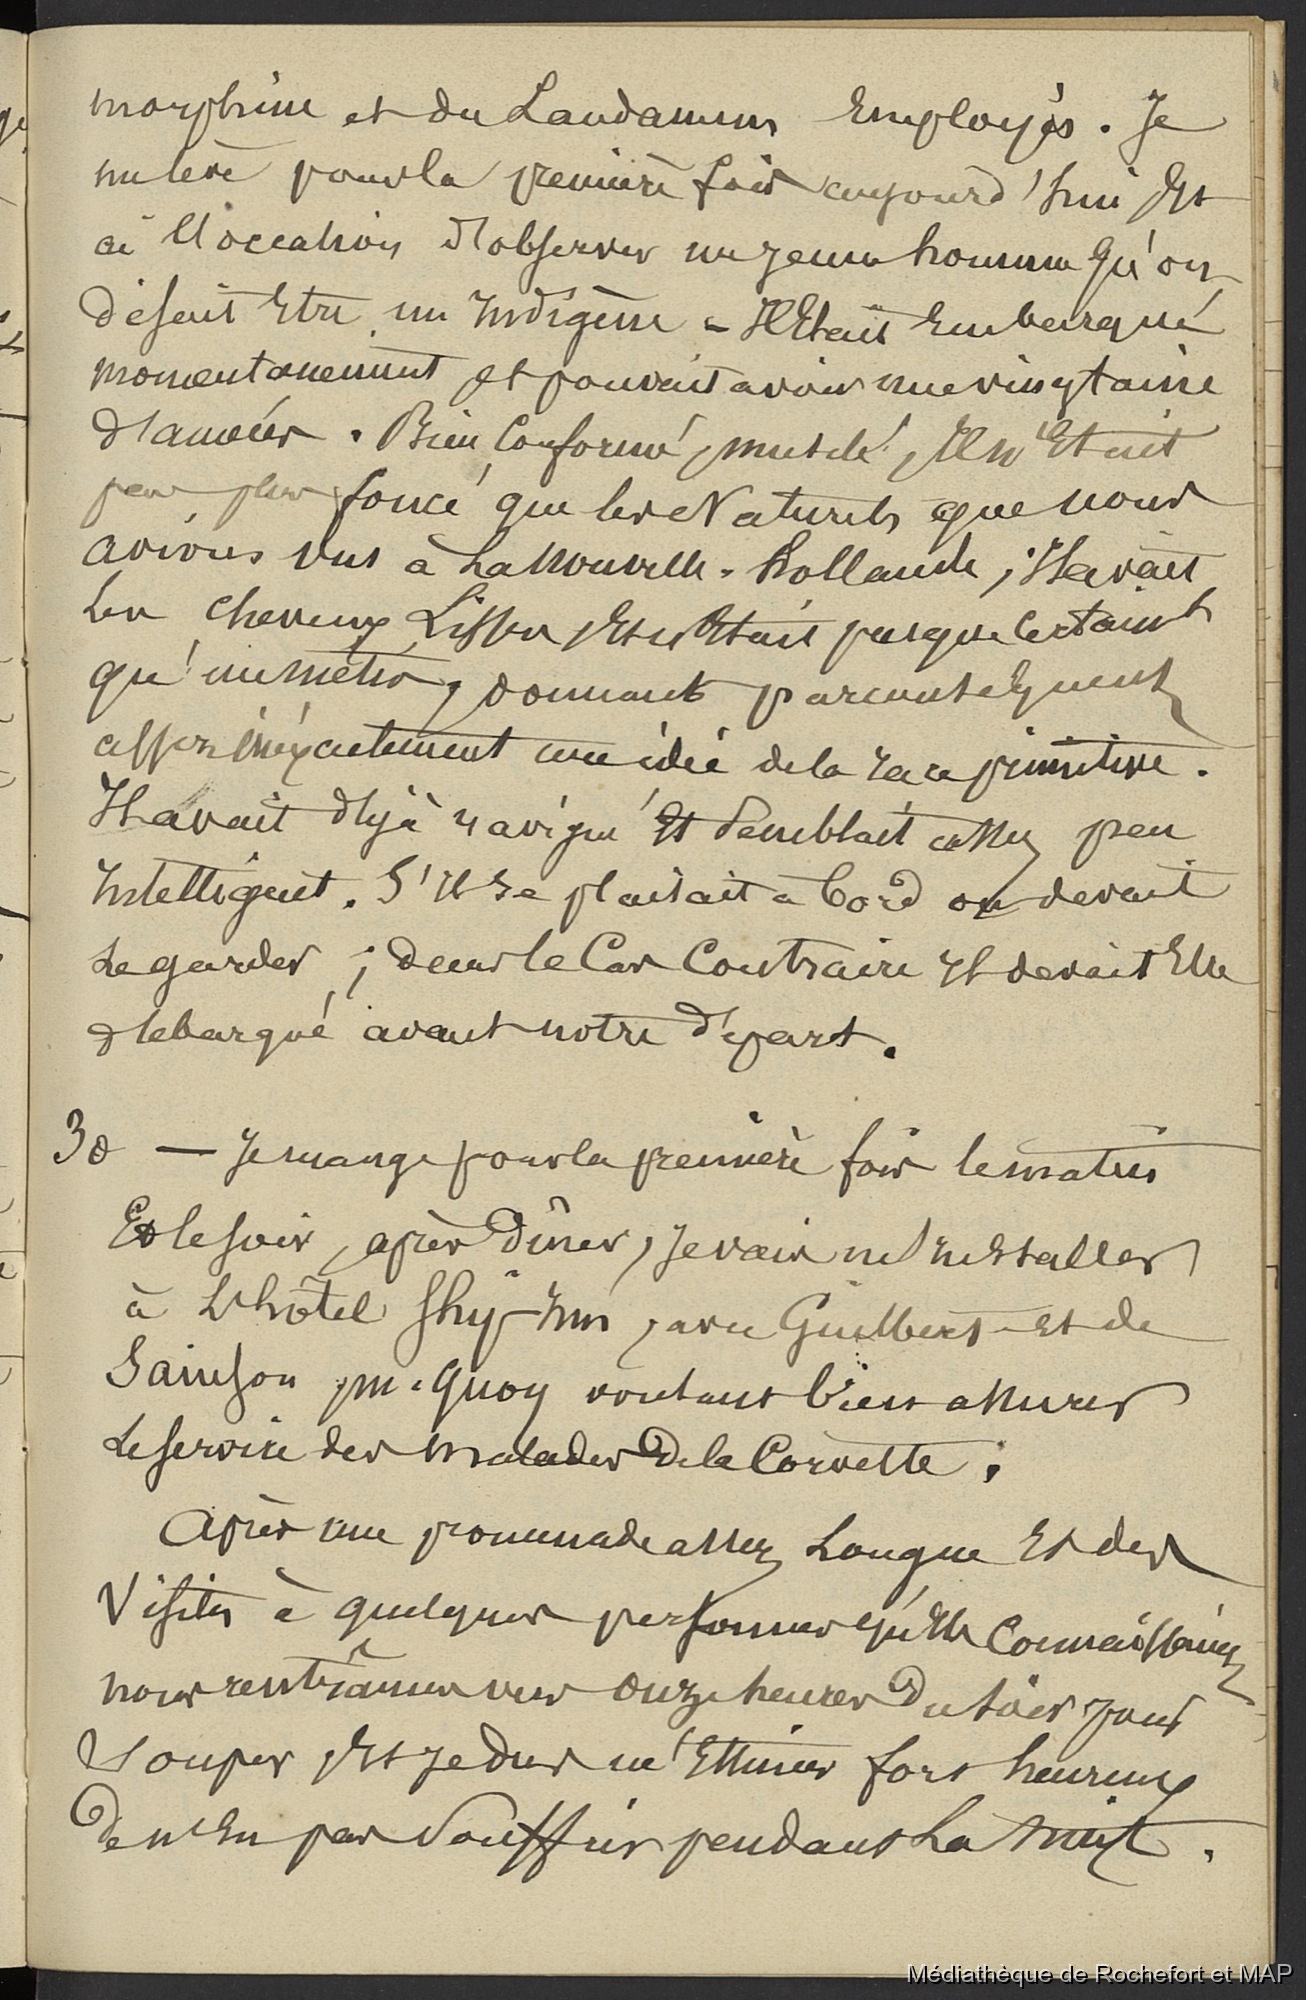 morphine et du Laudanum Employés. Je
me levè pour la premiere fois aujourd'hui Et
ai l'occation d'observer un jeune homme qu'on
disait Etre un Indigène - Il Etait Embarqué
momentanement et pouvait avoir une vingtaine
d'années. Bien Conformé, musclé, Il n'Etait
pas plus foncé que les Naturels que nous
avions vus à La Nouvelle-hollande, Il avait
les cheveux Lisses, Et n'Etait presque certainet
qu'un métis, donnant par conséquent
assez inéxactement une idée de la race primitive.
Il avait déjà navigué Et semblait assez peu
Intelligent. S'Il se plaisait à bord on devait
Le garder ; dans le Cas Contraire Il devait Etre
débarqué avant notre départ.
30 — Je mange pour la premiere fois le matin
Et le soir, après Dîner, je vais m'Installer
à L'hôtel Ship-Inn, avec Guilbert Et de
Sainson, m. Quoy voulant bien assurer
Le service des malades de la Corvette.
Après une promenade assez Longue Et des
Visites à quelques personnes qu'Ils Connaissaient
nous rentrâmes vers onze heures du soir pour
souper, Et je dus m'Estimer fort heureux
de n'En pas souffrir pendant La nuit.
Médiathèque de Rochefort et MAP